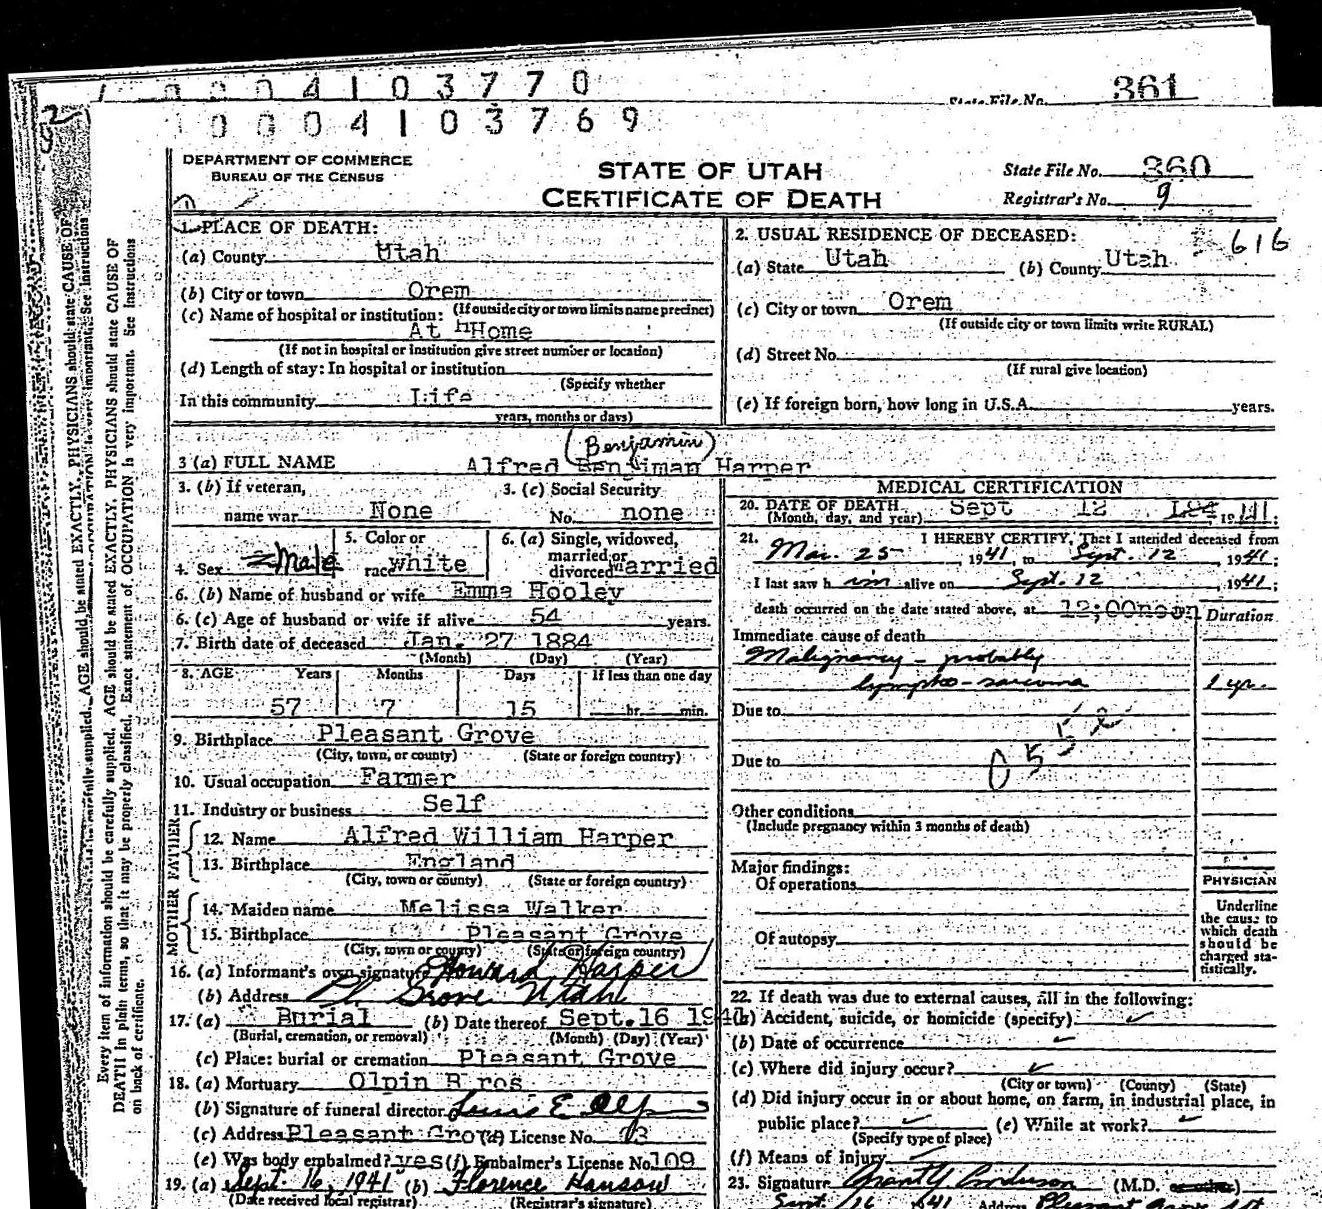 0004103770
State File No. 361
0004103769
DEPARTMENT OF COMMERCE
BUREAU OF THE CENSUS
STATE OF UTAH
CERTIFICATE OF DEATH
State File No. 360
Registrar's No. 9
1. PLACE OF DEATH:
(a) County Utah
(b) City or town Orem
(If outside city or town limits name precinct)
(c) Name of hospital or institution:
At hHome
(If not in hospital or institution give street number or location)
(d) Length of stay: In hospital or institution
(Specify whether
In this community Life
years, months or days)
2. USUAL RESIDENCE OF DECEASED: 616
(a) State Utah (b) County Utah
(c) City or town Orem
(If outside city or town limits write RURAL)
(d) Street No.
(If rural give location)
(e) If foreign born, how long in U.S.A. years.
(Benjamin)
3 (a) FULL NAME Alfred Benjiman Harper
3. (b) If veteran, name war None
3. (c) Social Security No. none
4. Sex Male
5. Color or race white
6. (a) Single, widowed, married or divorced married
6. (b) Name of husband or wife Emma Hooley
6. (c) Age of husband or wife if alive 54 years.
7. Birth date of deceased Jan. 27 1884
(Month) (Day) (Year)
8. AGE Years Months Days If less than one day
57 7 15 hr. min.
9. Birthplace Pleasant Grove
(City, town, or county) (State or foreign country)
10. Usual occupation Farmer
11. Industry or business Self
FATHER
12. Name Alfred William Harper
13. Birthplace England
(City, town or county) (State or foreign country)
MOTHER
14. Maiden name Melissa Walker
15. Birthplace Pleasant Grove
(City, town or county) (State or foreign country)
16. (a) Informant's own signature Howard Harper
(b) Address Pl. Grove Utah
17. (a) Burial (b) Date thereof Sept. 16 194
(Burial, cremation, or removal) (Month) (Day) (Year)
(c) Place: burial or cremation Pleasant Grove
18. (a) Mortuary Olpin Bros
(b) Signature of funeral director
(c) Address Pleasant Grove (d) License No. 13
(e) Was body embalmed? yes (f) Embalmer's License No. 109
19. (a) Sept. 16, 1941 (b) Florence Hanson
(Date received local registrar) (Registrar's signature)
MEDICAL CERTIFICATION
20. DATE OF DEATH Sept 12 1941;
(Month, day, and year)
21. I HEREBY CERTIFY, That I attended deceased from
Mar. 25 1941 to Sept. 12, 1941;
I last saw him alive on Sept. 12 1941;
death occurred on the date stated above, at 12;00noon Duration
Immediate cause of death
Malignancy - probably
lympho-sarcoma 1 yr.
Due to
0552
Due to
Other conditions
(Include pregnancy within 3 months of death)
Major findings:
Of operations
Of autopsy
PHYSICIAN
Underline
the cause to
which death
should be
charged sta-
tistically.
22. If death was due to external causes, fill in the following:
(a) Accident, suicide, or homicide (specify) ✓
(b) Date of occurrence ✓
(c) Where did injury occur? ✓
(City or town) (County) (State)
(d) Did injury occur in or about home, on farm, in industrial place, in
public place? ✓ (e) While at work? ✓
(Specify type of place)
(f) Means of injury
23. Signature (M.D.
Sept. 16 1941 Address Pleasant Grove Ut
Every item of information should be carefully supplied. AGE should be stated EXACTLY. PHYSICIANS should state CAUSE OF
DEATH in plain terms, so that it may be properly classified. Exact statement of OCCUPATION is very important. See Instructions
on back of certificate.